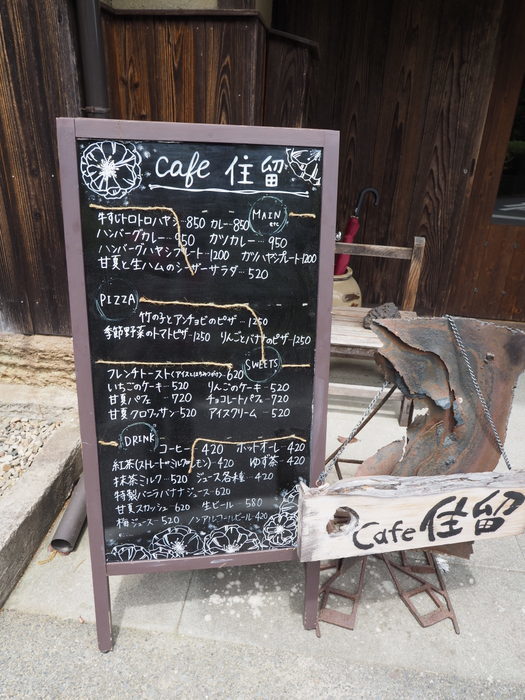 cafe 住留
MAIN etc
牛すじトロトロハヤシ…850 カレー…850
ハンバーグカレー…950 カツカレー…950
ハンバーグハヤシプレート…1200 カツハヤシプレート…1200
甘夏と生ハムのシーザーサラダ…520
PIZZA
竹の子とアンチョビのピザ…1250
季節野菜のトマトピザ…1250 りんごとバナナのピザ…1250
SWEETS
フレンチトースト(アイスとはちみつがけ) 620
いちごのケーキ…520 りんごのケーキ…520
甘夏パフェ…720 チョコレートパフェ…720
甘夏クロワッサン…520 アイスクリーム…520
DRINK
コーヒー 420 ホットオーレ…420
紅茶(ストレートorミルクorレモン) 420 ゆず茶…420
抹茶ミルク…520 ジュース各種…420
特製バニラバナナジュース…620
甘夏スカッシュ…620 生ビール…580
梅ジュース…520 ノンアルコールビール…420
Cafe 住留